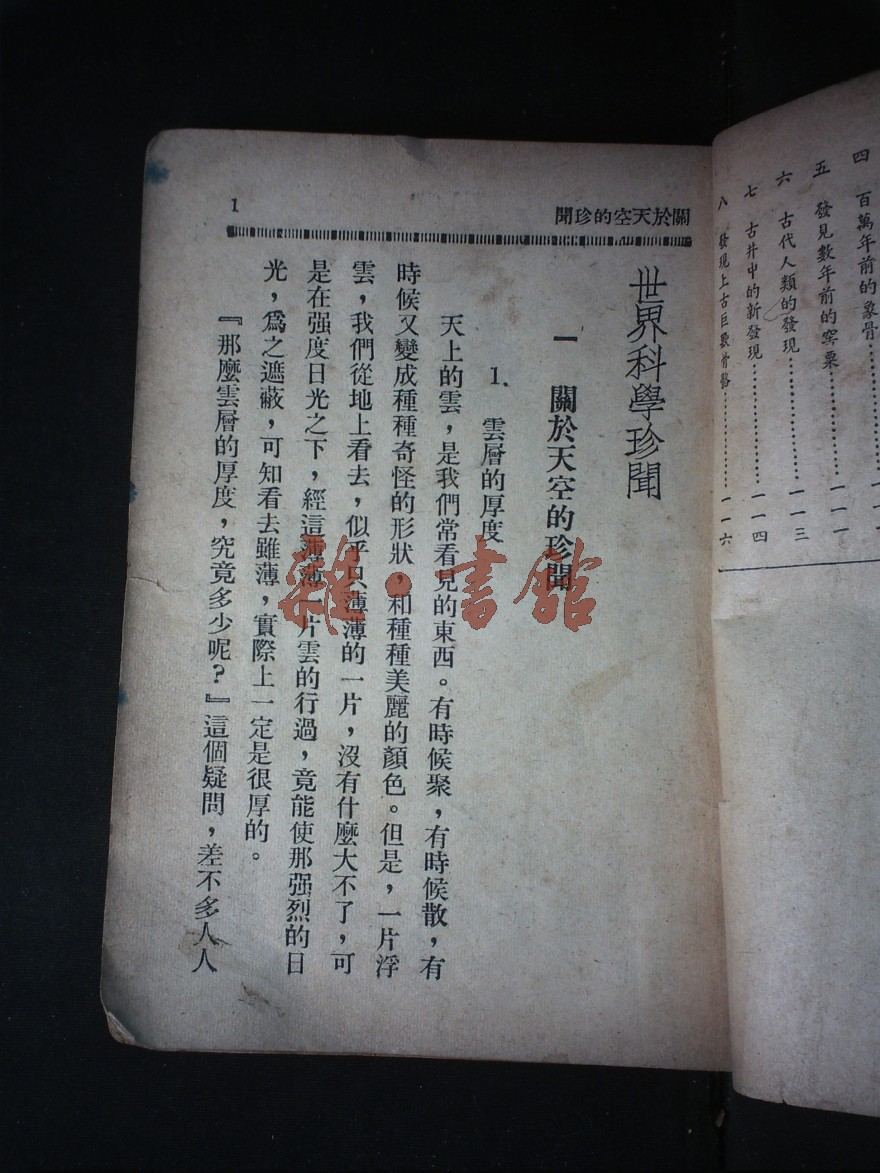 四 百萬年前的象骨
五 發見數年前的窰粟………一一一
六 古代人類的發現………一一三
七 古井中的新發現………一一四
八 發現上古巨獸骨骼………一一六
關於天空的珍聞
1
世界科學珍聞
一 關於天空的珍聞
1. 雲層的厚度
天上的雲，是我們常看見的東西。有時候聚，有時候散，有
時候又變成種種奇怪的形狀，和種種美麗的顏色。但是，一片浮
雲，我們從地上看去，似乎只薄薄的一片，沒有什麼大不了，可
是在强度日光之下，經這薄薄一片雲的行過，竟能使那强烈的日
光，爲之遮蔽，可知看去雖薄，實際上一定是很厚的。
『那麼雲層的厚度，究竟多少呢？』這個疑問，差不多人人
雜·書館